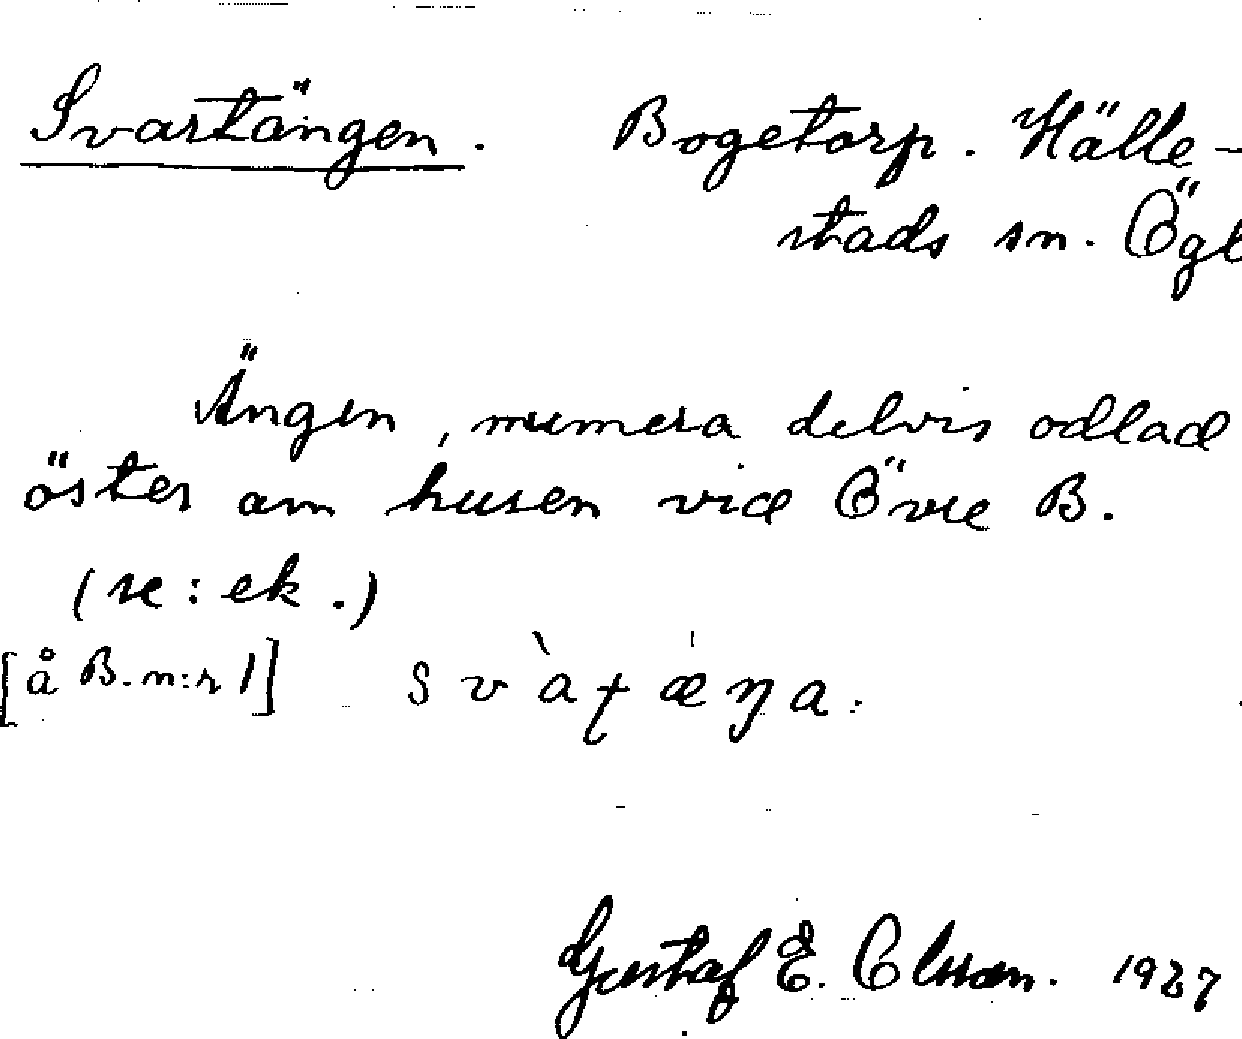 Svartängen. Bogetorp. Hälle-
stads sn. Ögl
Ängen, numera delvis odlad
öster om husen vid Övre B.
(se: ek.)
[å B. n:r 1] svàʈæŋa.
Gustaf E. Olsson. 1927